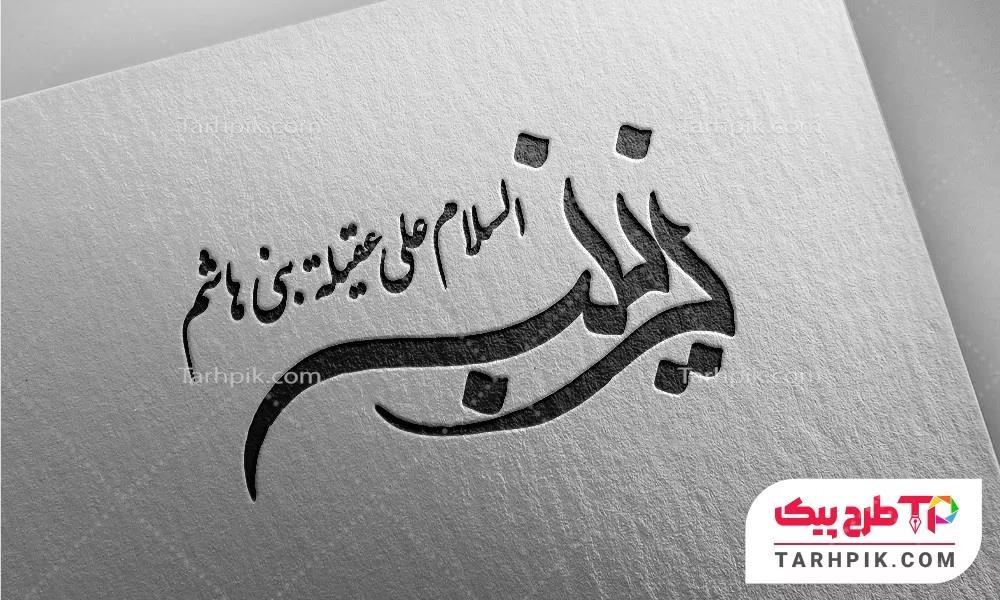 السلام علی عقیلة بنی هاشم
زینب
طرح پیک
TP
TARHPIK.COM
Tarhpik.com
Tarhpik.com
Tarhpik.com
Tarhpik.com